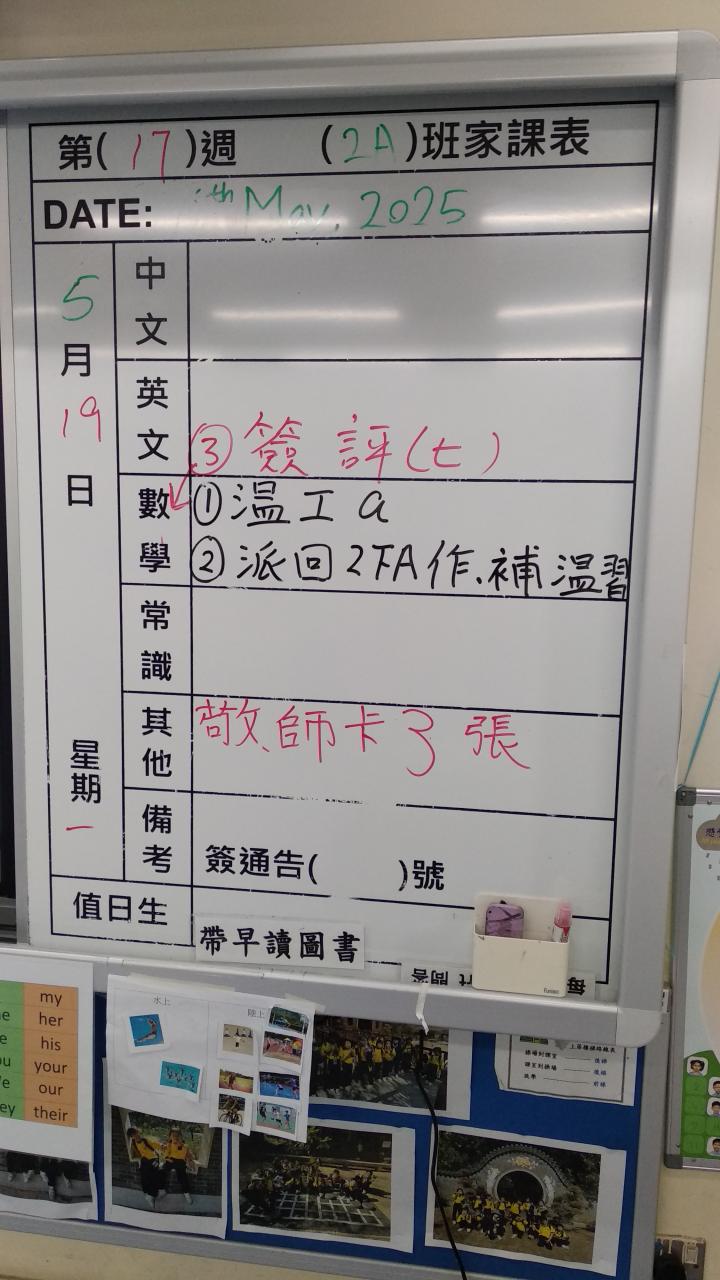 第(17)週 (2A)班家課表
DATE: th May, 2025
5月19日 星期一
中文
英文
③簽評(七)
數學
①温工a
②派回2TA作、補温習
常識
其他
敬師卡3張
備考
簽通告( )號
值日生
帶早讀圖書
my
her
his
your
our
their
水上
陸上